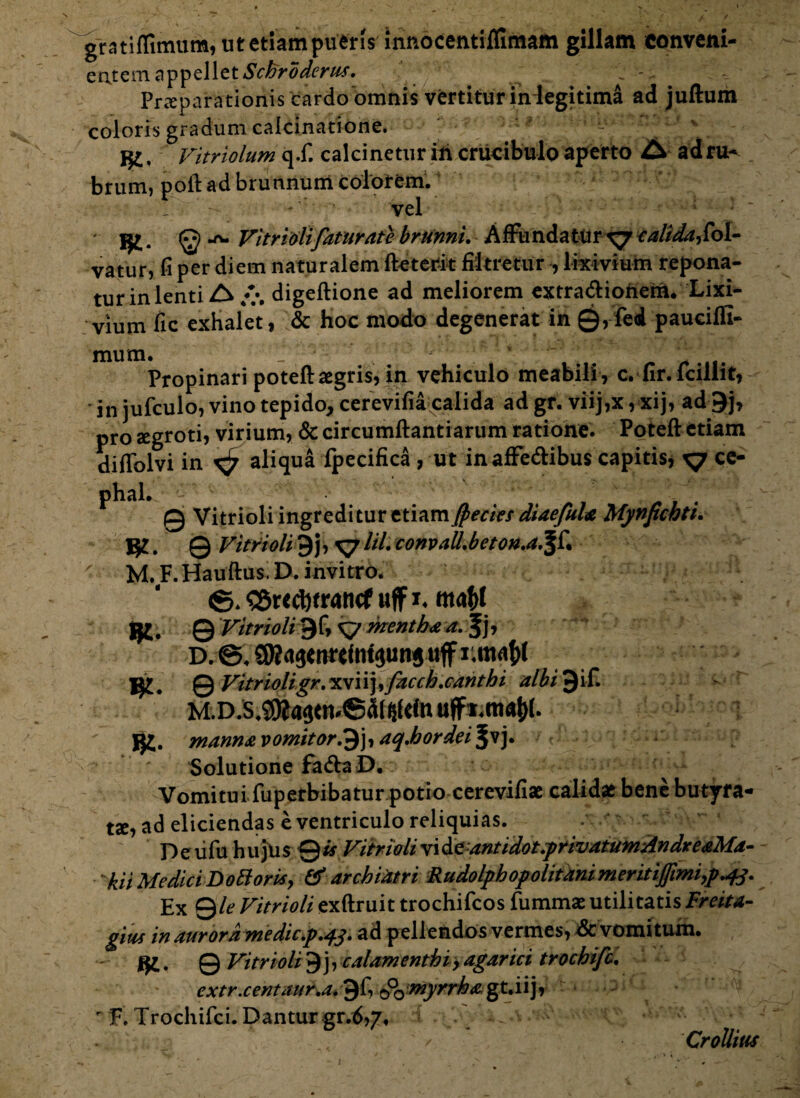 gratiſſimum, ut etiam pueris innocentiſſimam gillam conveni-
entem appellet Schröderus.
Præparationis cardo omnis vertitur in legitimâ ad juſtum
coloris gradum calcinatione.
℞. Vitriolum q.ſ. calcinetur in crucibulo aperto 🜂 ad ru-
brum, poſt ad brunnum colorem.
vel
℞. Vitrioli ſaturatè brunni. Affundatur 🜄 calida, ſol-
vatur, ſi per diem naturalem ſteterit filtretur, lixivium repona-
tur in lenti 🜂 digeſtione ad meliorem extractionem. Lixi-
vium ſic exhalet, & hoc modo degenerat in 🜔, ſed pauciſſi-
mum.
Propinari poteſt ægris, in vehiculo meabili, c. ſir. ſcillit,
in juſculo, vino tepido, cereviſiâ calida ad gr. viij,x, xij, ad ℈j,
pro ægroti, virium, & circumſtantiarum ratione. Poteſt etiam
diſſolvi in 🜄 aliquâ ſpecificâ, ut in affectibus capitis, 🜄 ce-
phal.
🜔 Vitrioli ingreditur etiam ſpecies diaeſulæ Mynſichti.
℞. 🜔 Vitrioli ℈j, 🜄 lil. convall. beton.a.℥ſ.
M.F. Hauſtus. D. in vitro.
S. Brechtranck uff 1. mahl
℞. 🜔 Vitrioli ℈ſ, 🜄 menthæ a. ℥j,
D. S. Magenreinigung uff 1. mahl
℞. 🜔 Vitrioli gr. xviij, ſacch. canthi albi ℈iſ.
M.D.S. Magen-Sältzlein uff 1. mahl.
℞. mannæ vomitor.℈j, aq. hordei ℥vj.
Solutione facta D.
Vomitui ſuperbibatur potio cereviſiæ calidæ bene butyra-
tæ, ad eliciendas è ventriculo reliquias.
De uſu hujus 🜔is Vitrioli vide antidot. privatum Andreæ Ma-
kii Medici Doctoris, & archiatri Rudolphopolitani meritiſſimi, p.43.
Ex 🜔le Vitrioli exſtruit trochiſcos ſummæ utilitatis Freita-
gius in aurorâ medic. p.43. ad pellendos vermes, & vomitum.
℞. 🜔 Vitrioli ℈j, calamenthi, agarici trochiſc.
extr. centaur. a. ℈ſ, myrrhæ gt.iij,
F. Trochiſci. Dantur gr.6,7.
Crollius